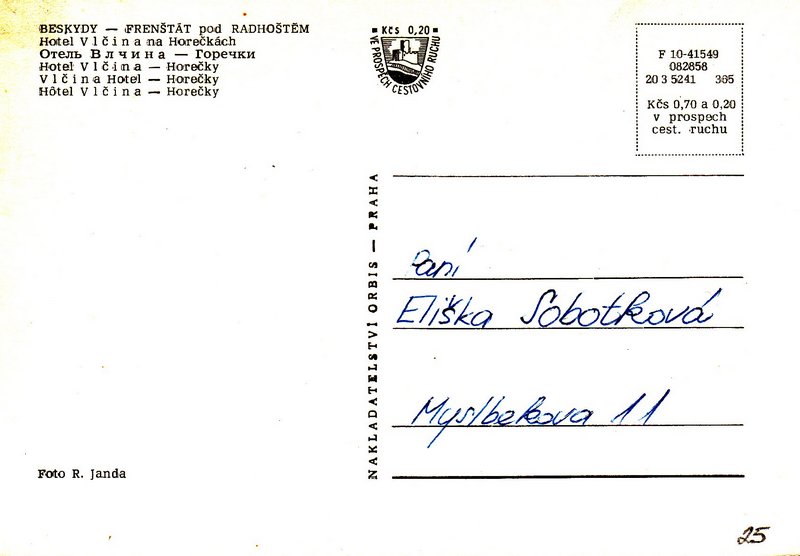 BESKYDY — FRENŠTÁT pod RADHOŠTĚM
Hotel Vlčina na Horečkách
Отель Влчина — Горечки
Hotel Vlčina — Horečky
Vlčina Hotel — Horečky
Hôtel Vlčina — Horečky
Kčs 0,20
VE PROSPĚCH CESTOVNÍHO RUCHU
F 10-41549
082858
20 3 5241 365
Kčs 0,70 a 0,20
v prospech
cest. ruchu
NAKLADATELSTVÍ ORBIS — PRAHA
Paní
Eliška Sobotková
Myslbekova 11
Foto R. Janda
25